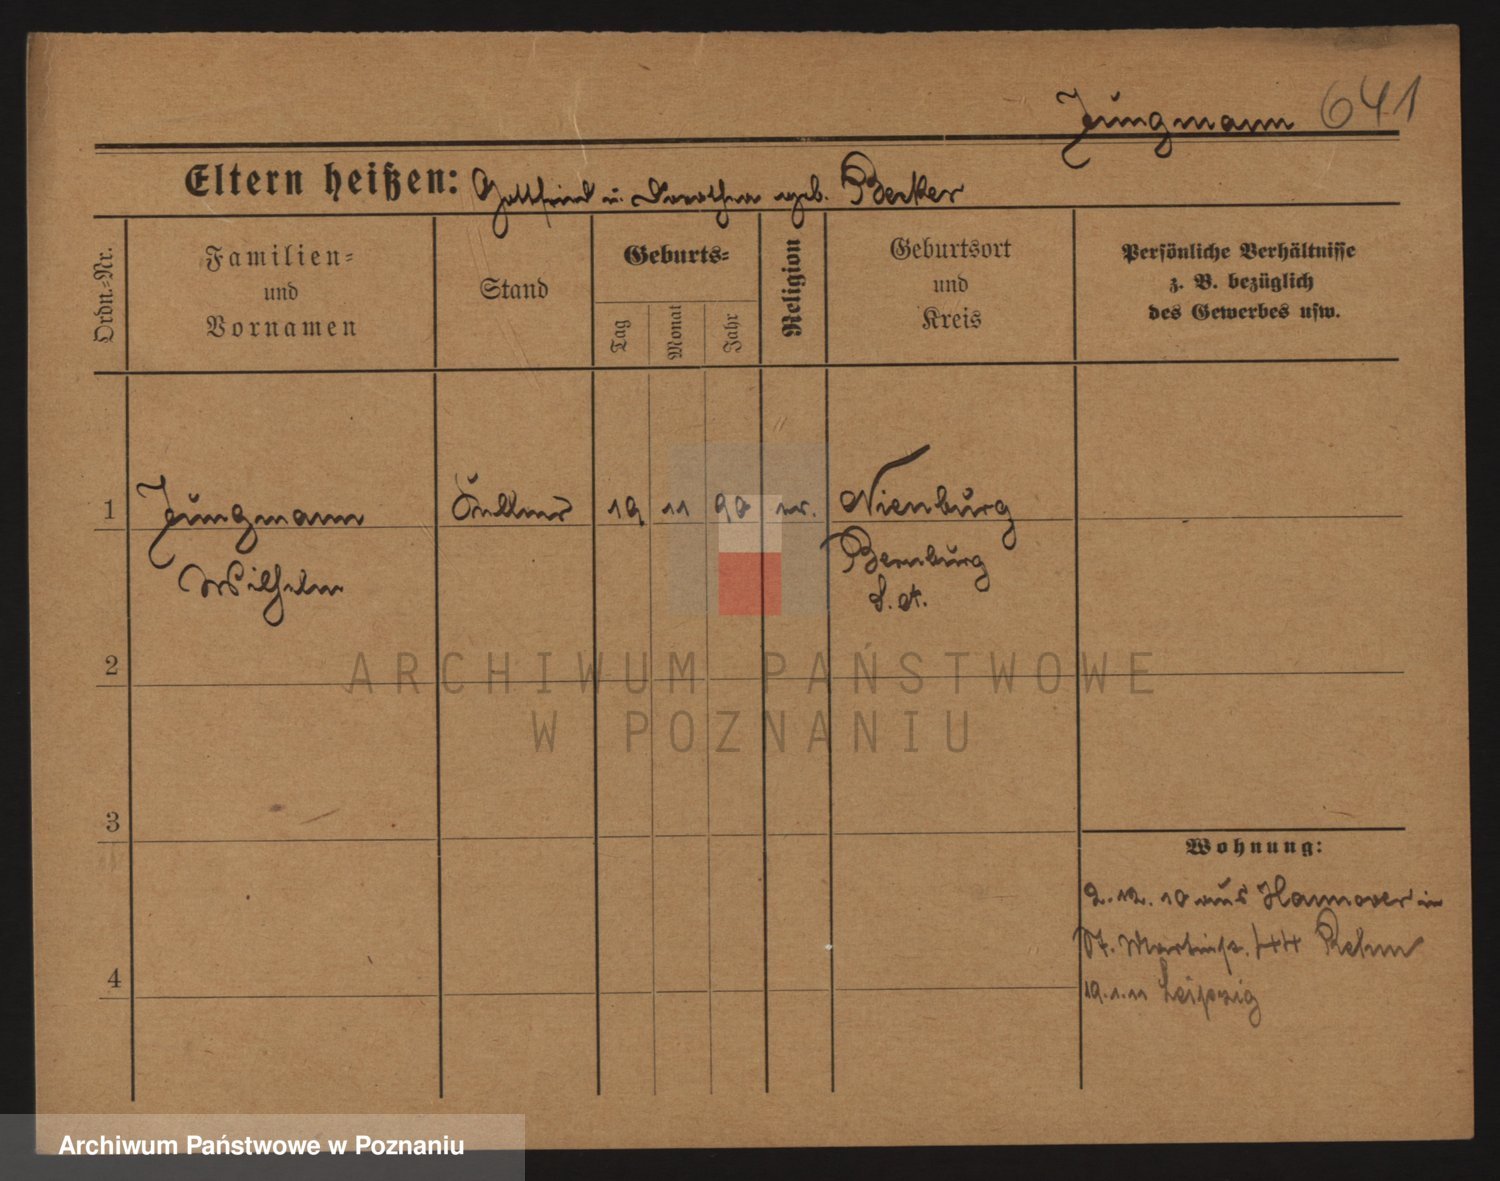 Jungmann 641
Eltern heißen: Gottfried u. Dorothea geb. Becker
Ordn.-Nr.
Familien-
und
Vornamen
Stand
Geburts-
Tag
Monat
Jahr
Religion
Geburtsort
und
Kreis
Persönliche Verhältnisse
z. B. bezüglich
des Gewerbes usw.
1 Jungmann Kellner 19 11 90 ev. Nienburg
Wilhelm Bernburg
S. A.
2
3
4
Wohnung:
2.12.10 aus Hannover in
St. Martinstr. 44 Rehm
19.1.11 Leipzig
ARCHIWUM PAŃSTWOWE
W POZNANIU
Archiwum Państwowe w Poznaniu